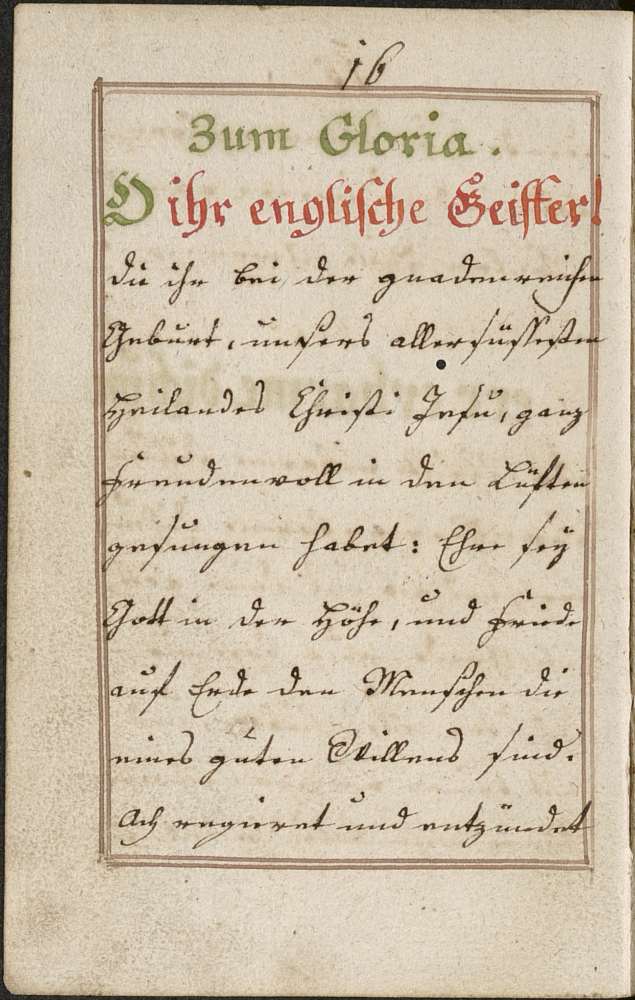 16
Zum Gloria.
O ihr englische Geister!
die ihr bei der gnadenreichen
Geburt, unsers allersüssesten
Heilandes Christi Jesu, ganz
freudenvoll in den Lüften
gesungen habet: Ehre sey
Gott in der Höhe, und Friede
auf Erde den Menschen die
eines guten Willens sind.
Ach regieret und entzündet